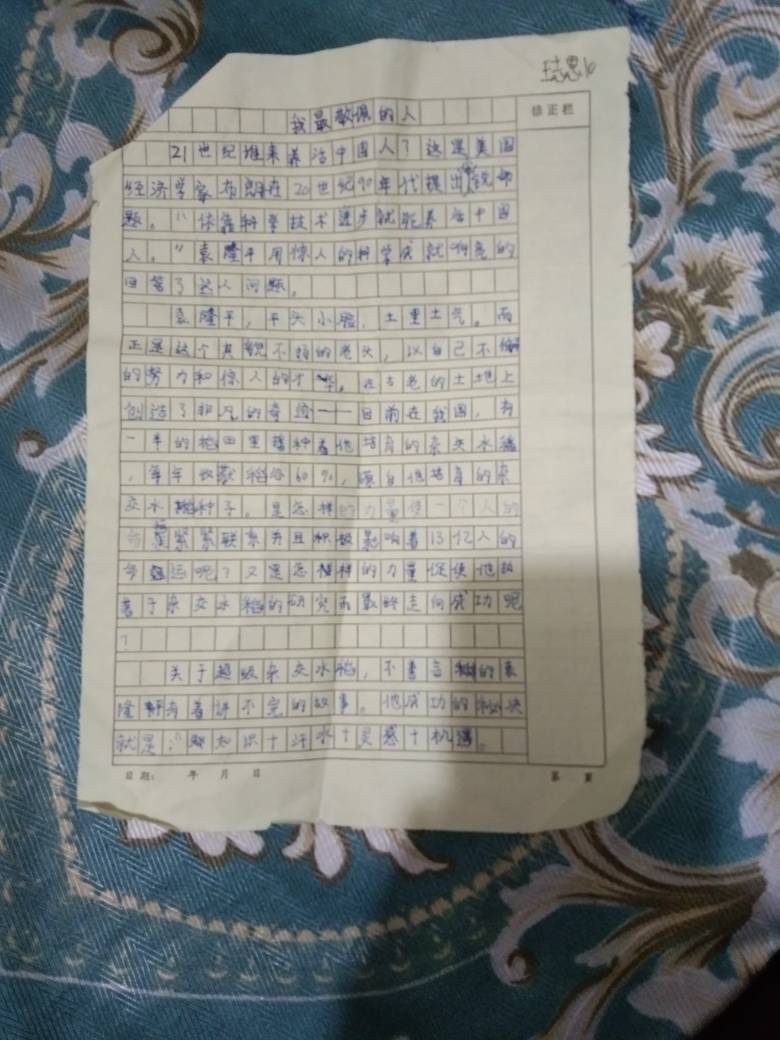 修正栏
我最敬佩的人
21世纪谁来养活中国人？这是美国
经济学家布朗在20世纪90年代提出的
题。“依靠科学技术进步就能养活中国
人。”袁隆平用惊人的科学成就响亮的
回答了这人问题。
袁隆平，平头小脸，土里土气。而
正是这个其貌不扬的老头，以自己不懈
的努力和惊人的才华，在古老的土地上
创造了非凡的奇迹——目前在我国，有
一半的稻田里播种着他培育的杂交水稻
，每年收获稻谷60%，源自他培育的杂
交水稻种子。是怎样的力量使一个人的
紧紧联系并且积极影响着13亿人的
命运呢？又是怎样的力量促使他执
着于杂交水稻的研究而最终走向成功呢
？
关于超级杂交水稻，不善言辞的袁
隆平有着讲不完的故事。他成功的秘诀
就是：“知识+汗水+灵感+机遇。
日期： 年 月 日
第 页